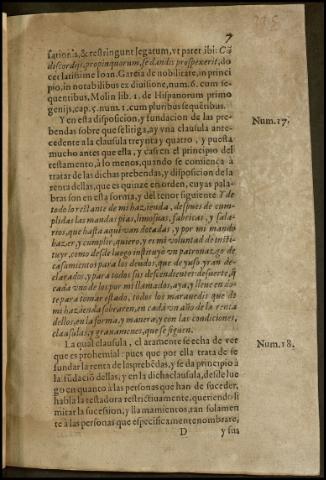 7
sationis, & restringunt legatum, vt patet ibi: Cū
discordijs, propinquorum, sedandis prospexerit, do
cet latissime Ioan. Garcia de nobilitate, in princi
pio, in notabilibus ex diuisione, num. 6. cum se-
quentibus, Molin. lib. 1. de Hispanorum primo
genijs, cap. 5. num. 1. cum pluribus sequētibus.
Y en esta disposicion, y fundacion de las pre-
bendas sobre que se litiga, ay vna clausula ante-
cedente a la clausula treynta y quatro, y puesta
mucho antes que esta, y casi en el principio del
testamento, à lo menos, quando se comienca à
tratar de las dichas prebendas, y disposicion de la
renta dellas, que es quinze en orden, cuyas pala-
bras son en esta forma, y del tenor siguiente. Y de
todo lo restante de mi hazienda, despues de cum-
plidas las mandas pias, limosnas, fabricas, y sala-
rios, que hasta aqui van dotadas, y por mi mando
hazer, y cumplir, quiero, y es mi voluntad de insti-
tuyr, como desde luego instituyo vn patronazgo de
casamientos para los deudos, que de yuso yran de-
clarados, y para todos sus descendientes de suerte, q̄
cada vno de los por mi llamados, aya, y lleue en do-
te para tomar estado, todos los marauedis que de
mi hazienda sobraren, en cada vn año de la renta
dellos, en la forma, y manera, y con las condiciones,
clausulas, y grauamenes, que se siguen.
La qual clausula, claramente se echa de ver
que es prohemial: pues que por ella trata de se
fundar la renta de las prebēdas, y se da principio à
la fūdaciō dellas, y en la dicha clausula, desde lue
go en quanto à las personas que han de suceder,
habla la testadora restrictiuamente, queriendo li
mitar la sucession, y llamamientos, tan solamen
te à las personas que especificamente nombrare,
D y sus
Num. 17.
Num. 18.